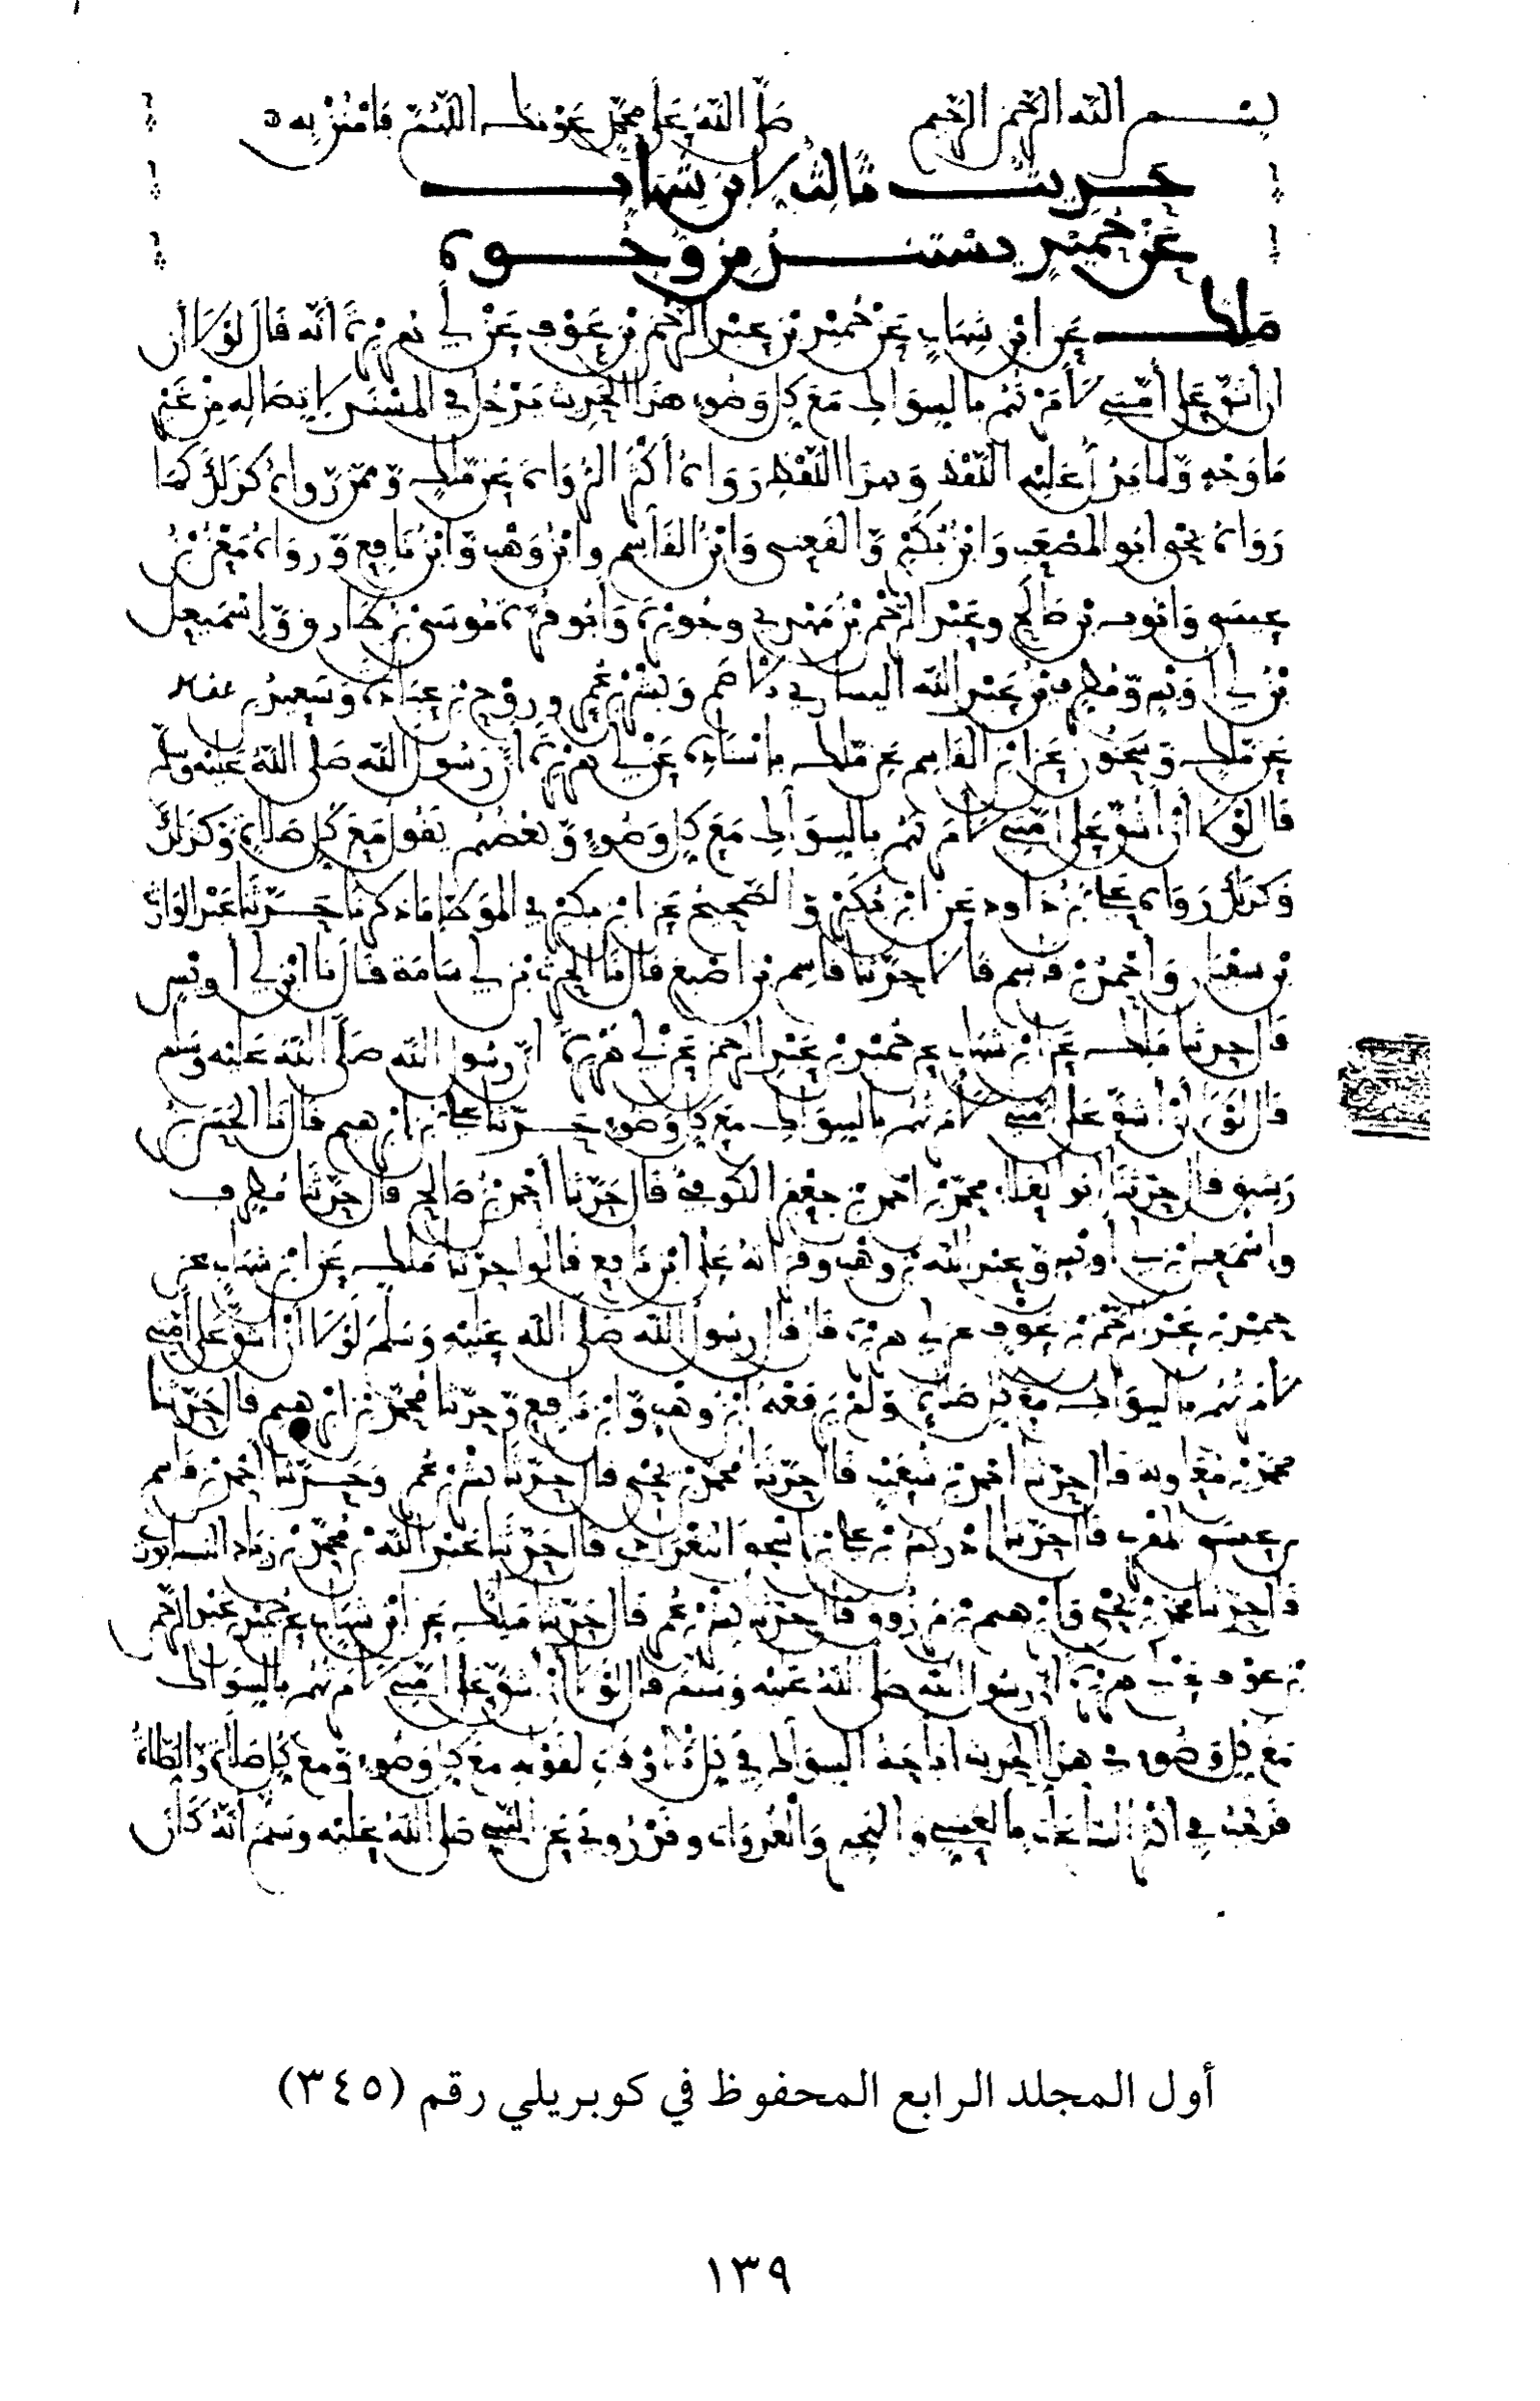 بسم الله الرحمن الرحيم صلى الله على محمد عونك اللهم فامنن به
حديث ثالث لابن شهاب
عن حميد يستند من وجوه
ملك عن ابن شهاب عن حميد بن عبد الرحمن بن عوف عن أبي هريرة أنه قال لولا أن
أن أشق على أمتي لأمرتهم بالسواك مع كل وضوء هذا الحديث يدخل في المسند لاتصاله من غير
ما وجه ولما يدل عليه اللفظ وبهذا اللفظ رواه أكثر الرواة عن ملك وممن رواه كذلك كما
رواه يحيى أبو المصعب وابن بكير والقعنبي وابن القاسم وابن وهب وابن نافع ورواه معن بن
عيسى وأيوب بن صالح وعبد الرحمن بن مهدي وجويرية وأبو قرة موسى بن طارق وإسمعيل
بن أبي أويس ومطرف بن عبد الله اليساري الأصم وبشر بن عمر وروح بن عبادة وسعيد بن عفير
عن ملك وسحنون عن ابن القاسم عن ملك بإسناده عن أبي هريرة أن رسول الله صلى الله عليه وسلم
قال لولا أن أشق على أمتي لأمرتهم بالسواك مع كل وضوء وبعضهم يقول مع كل صلاة وكذلك
وكذلك رواه علي بن داود عن ابن بكير والصحيح عن ابن بكير في الموطأ ما ذكرنا حدثنا عبد الوارث
بن سفيان وأحمد بن قسم قالا حدثنا قاسم بن أصبغ قال نا الحرث بن أبي أسامة قال نا ابن أبي أويس
قال حدثنا ملك عن ابن شهاب عن حميد بن عبد الرحمن عن أبي هريرة أن رسول الله صلى الله عليه وسلم
قال لولا أن أشق على أمتي لأمرتهم بالسواك مع كل وضوء حدثنا علي بن إبرهيم قال نا الحسن بن
رشيق قال حدثنا أبو العلاء محمد بن أحمد بن جعفر الكوفي قال حدثنا أحمد بن صالح قال حدثنا مطرف
وإسمعيل بن أبي أويس وعبد الله بن وهب وقرأته على ابن نافع قالوا حدثنا ملك عن ابن شهاب عن
حميد بن عبد الرحمن بن عوف عن أبي هريرة قال قال رسول الله صلى الله عليه وسلم لولا أن أشق على أمتي
لأمرتهم بالسواك مع كل صلاة ولم يرفعه ابن وهب وابن نافع وحدثنا محمد بن إبرهيم قال حدثنا
محمد بن معاوية قال حدثنا أحمد بن شعيب قال حدثنا محمد بن يحيى قال حدثنا بشر بن عمر وحدثنا أحمد بن قاسم
بن عيسى المقرئ قال حدثنا إدريس بن علي بن إسحق البغدادي قال حدثنا عبد الله بن محمد بن زياد النيسابوري
قال حدثنا محمد بن يحيى وإبرهيم بن مرزوق قال حدثنا بشر بن عمر قال حدثنا ملك عن ابن شهاب عن حميد بن عبد الرحمن
بن عوف عن أبي هريرة أن رسول الله صلى الله عليه وسلم قال لولا أن أشق على أمتي لأمرتهم بالسواك
مع كل وضوء في هذا الحديث إباحة السواك في كل وقت لقوله مع كل وضوء ومع كل صلاة والصلاة
قد تجب في أكثر الساعات بالعشي والهجير والغدوات وقد روي عن النبي صلى الله عليه وسلم أنه كان
أول المجلد الرابع المحفوظ في كوبريلي رقم (٣٤٥)
١٣٩